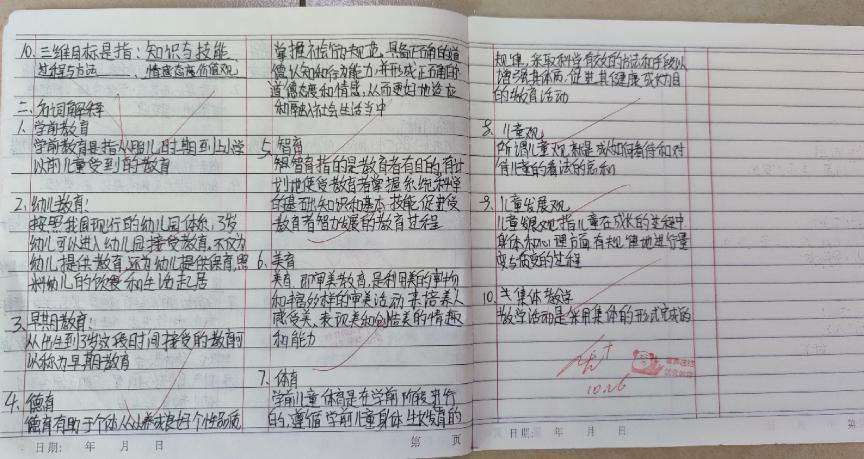 10. 三维目标是指: 知识与技能、
过程与方法、情感态度价值观
二、名词解释
1. 学前教育
学前教育是指从胎儿时期到上小学
以前儿童受到的教育
2. 幼儿教育:
按照我国现行的幼儿园体系, 3岁
幼儿可以进入幼儿园接受教育, 不仅为
幼儿提供教育, 还为幼儿提供保育, 照
料幼儿的饮食和生活起居
3. 早期教育:
从出生到3岁这段时间接受的教育可
以称为早期教育
4. 德育
德育有助于个体从小养成良好个性品质,
日期: 年 月 日
掌握社会行为规范, 具备正面的道
德认知和行为能力, 并形成正面的
道德态度和情感, 从而更好地适应
和融入社会生活当中
5. 智育
智育指的是教育者有目的, 有计
划地使受教育者掌握系统科学
的基础知识和基本技能, 促进受
教育者智力发展的教育过程
6. 美育
美育, 即审美教育, 是利用美的事物
和丰富多样的审美活动来培养人
感受美, 表现美和创造美的情趣
和能力
7. 体育
学前儿童体育是在学前阶段进行
的, 遵循学前儿童身体生长发育的
第 页
规律, 采取科学有效的方法和手段以
增强其体质, 促进其健康成长为目
的的教育活动
8. 儿童观
所谓儿童观就是成人如何看待和对
待儿童的看法的总和
9. 儿童发展观
儿童发展观指儿童在成长的过程中
身体和心理方面有规律地进行量
变与质变的过程
10. 集体教学
教学活动是采用集体的形式完成的
10.26
日期: 年 月 日
第